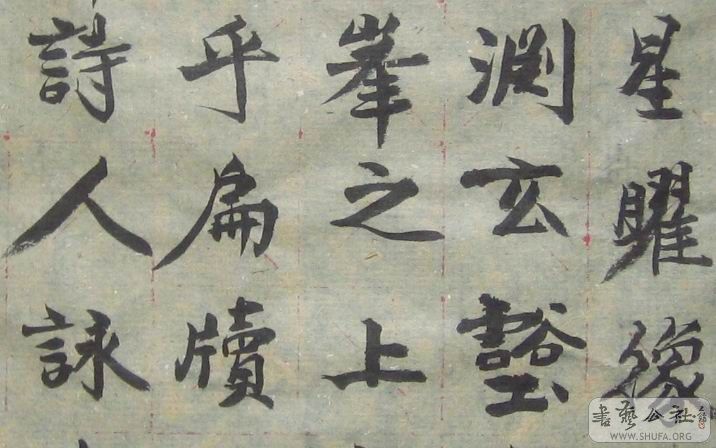 星曜後
淵玄壑
峯之上
乎扁牘
詩人詠
書藝公社
WWW.SHUFA.ORG